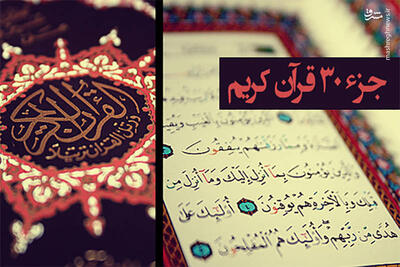 مشرق
mashreghnews.ir
جزء ۳۰ قرآن کریم
القرآن الكريم
ورتل القرآن ترتيلا
ومما رزقنهم ينفقون
يؤمنون بما أنزل إليك وما أنزل من
قبلك وبالآخرة هم يوقنون ٤ أولئك على
هدى من ربهم وأولئك هم المفلحون